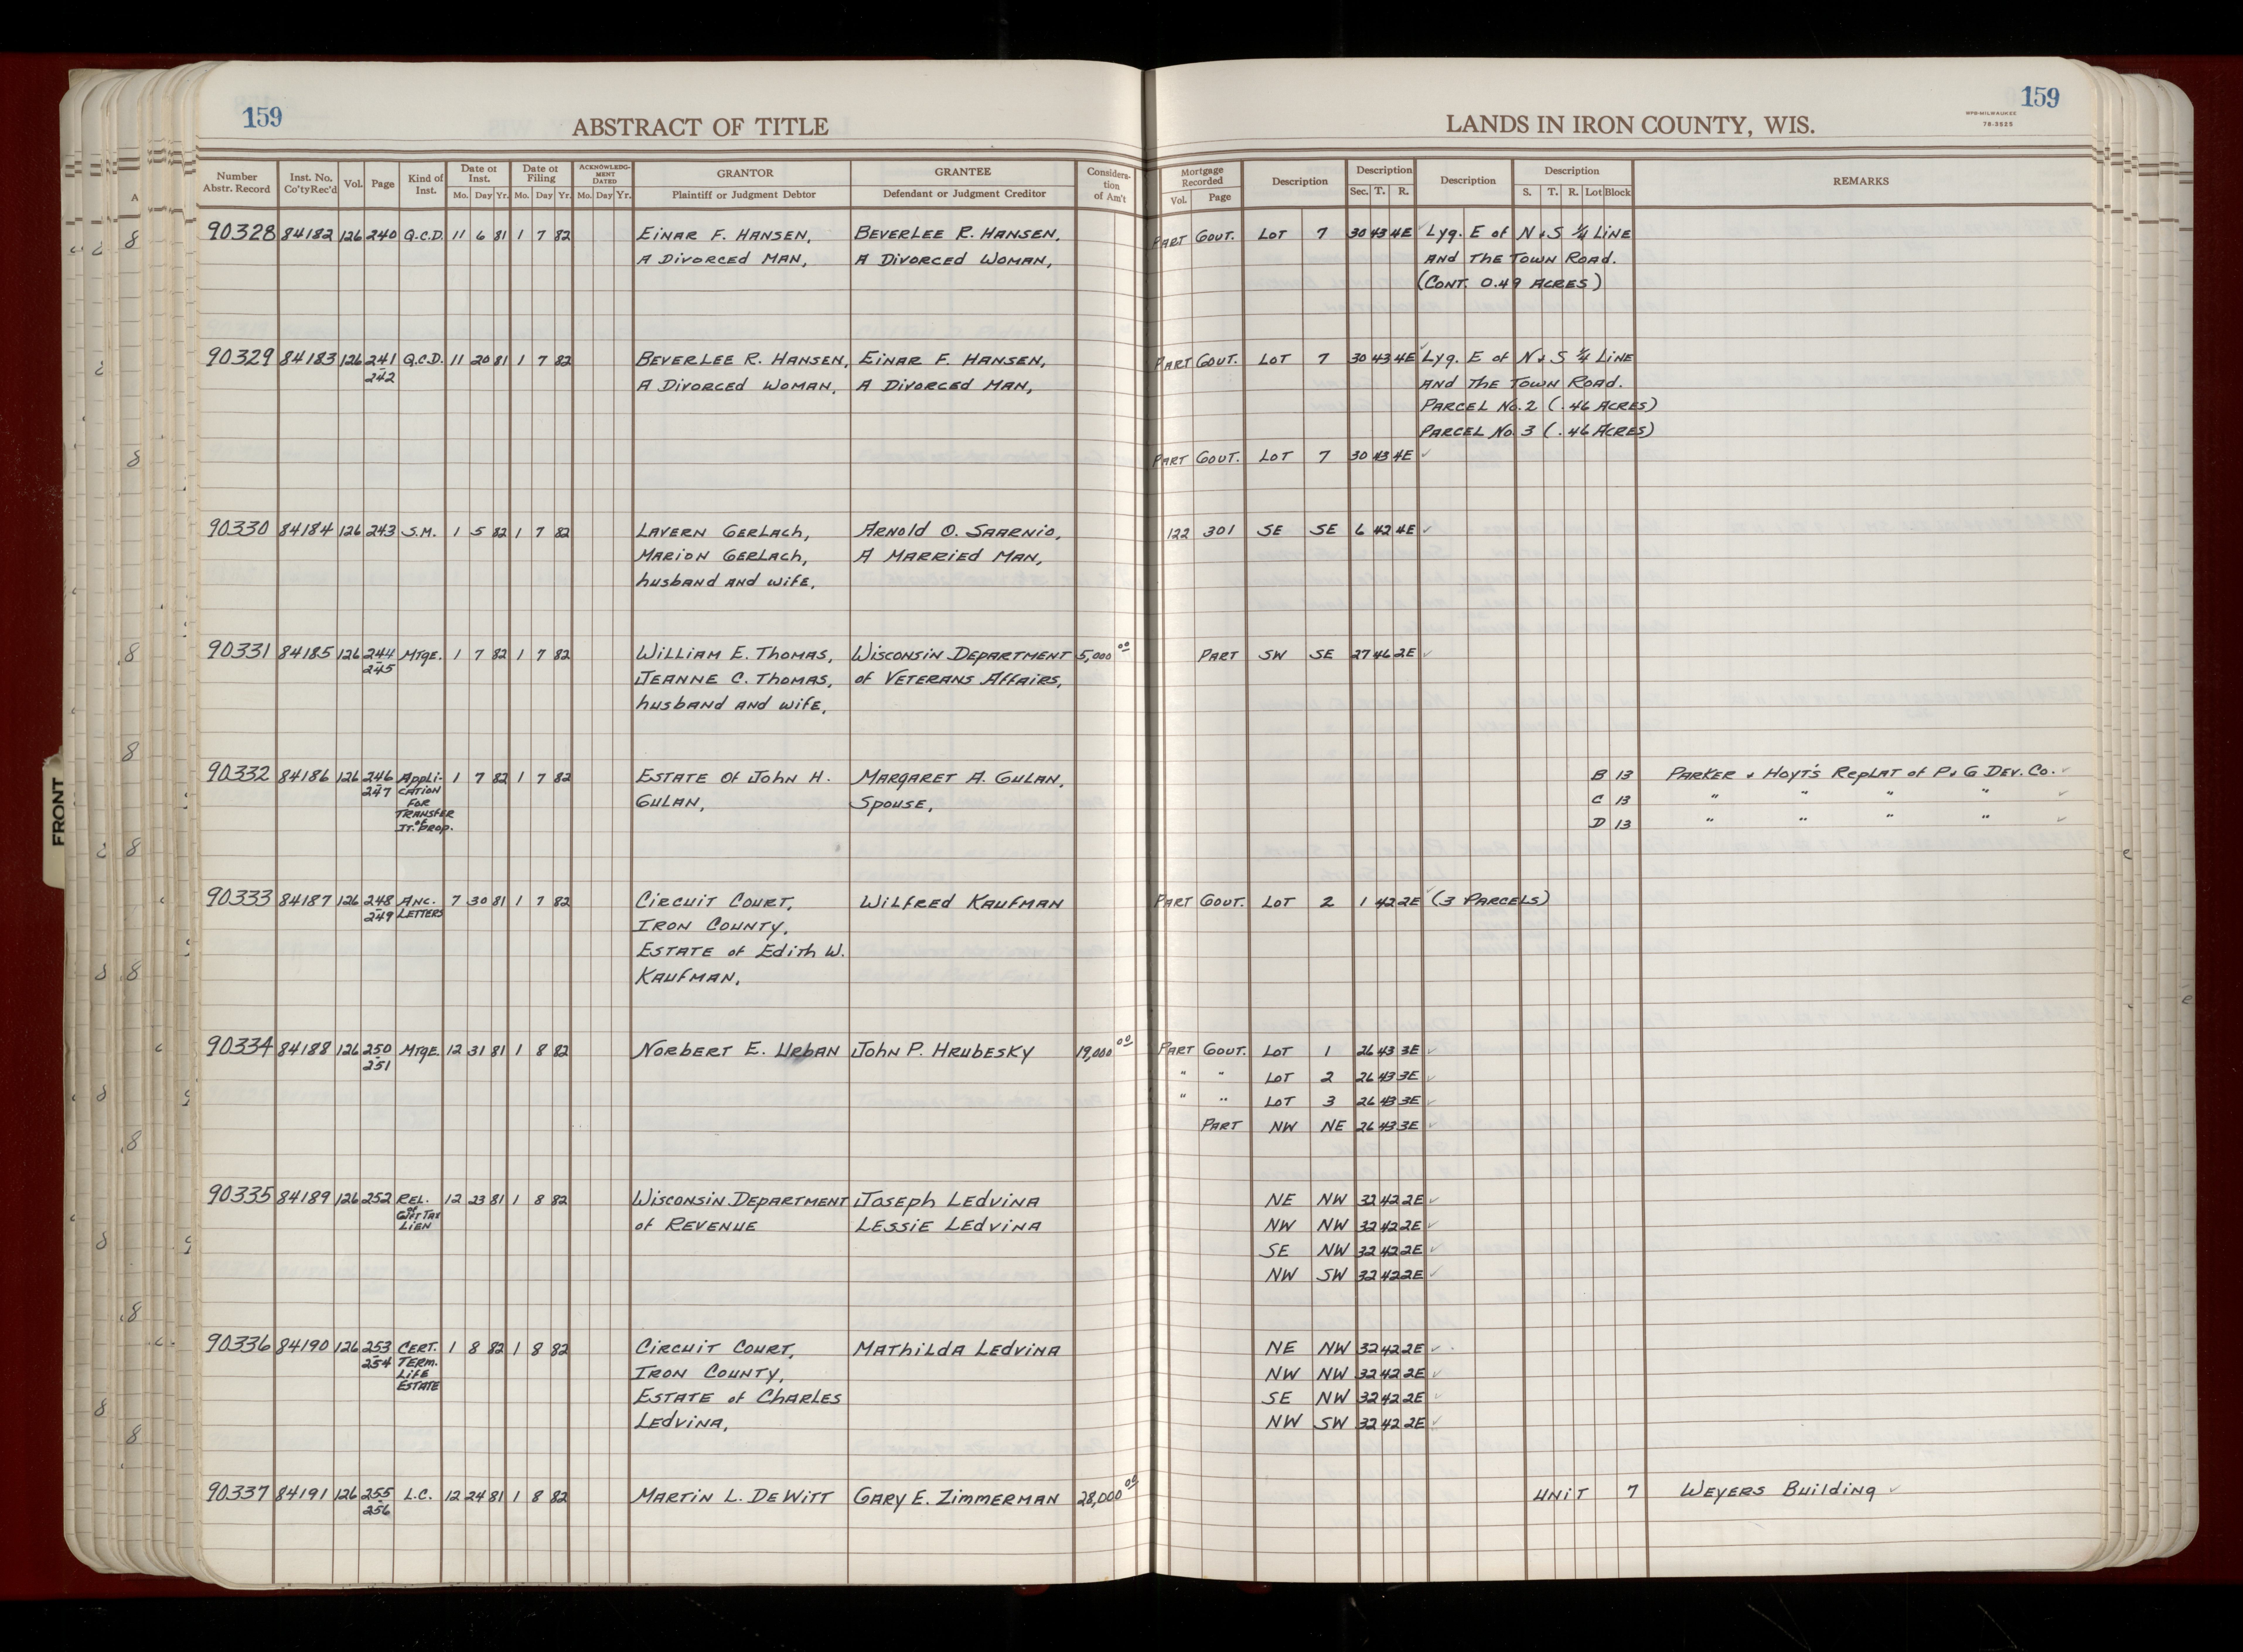 159
ABSTRACT OF TITLE
LANDS IN IRON COUNTY, WIS.
159
WPB-MILWAUKEE
78-3525
Number Abstr. Record | Inst. No. Co'ty Rec'd | Vol. | Page | Kind of Inst. | Date of Inst. Mo. Day Yr. | Date of Filing Mo. Day Yr. | ACKNOWLEDGMENT DATED Mo. Day Yr. | GRANTOR Plaintiff or Judgment Debtor | GRANTEE Defendant or Judgment Creditor | Consideration of Am't | Mortgage Recorded Vol. Page | Description | Description Sec. T. R. | Description | Description S. T. R. Lot Block | REMARKS
90328 84182 126 240 Q.C.D. 11 6 81 1 7 82 EINAR F. HANSEN, BEVERLEE R. HANSEN, PART GOVT. LOT 7 30 43 4E Lyg. E of N & S 1/4 LINE
A DIVORCED MAN, A DIVORCED WOMAN, AND THE TOWN ROAD.
(CONT. 0.49 ACRES)
90329 84183 126 241 Q.C.D. 11 20 81 1 7 82 BEVERLEE R. HANSEN, EINAR F. HANSEN, PART GOVT. LOT 7 30 43 4E Lyg. E of N & S 1/4 LINE
- 242 A DIVORCED WOMAN, A DIVORCED MAN, AND THE TOWN ROAD.
PARCEL No. 2 (.46 ACRES)
PARCEL No. 3 (.46 ACRES)
PART GOVT. LOT 7 30 43 4E
90330 84184 126 243 S.M. 1 5 82 1 7 82 LAVERN GERLACH, ARNOLD O. SAARNIO, 122 301 SE SE 6 42 4E
MARION GERLACH, A MARRIED MAN,
husband AND wife,
90331 84185 126 244 MTGE. 1 7 82 1 7 82 WILLIAM E. THOMAS, WISCONSIN DEPARTMENT 5,000 00 PART SW SE 27 46 2E
- 245 JEANNE C. THOMAS, of VETERANS AFFAIRS,
husband AND wife,
90332 84186 126 246 APPLI- 1 7 82 1 7 82 ESTATE Of JOHN H. MARGARET A. GULAN, B 13 PARKER & HOYT'S REPLAT of P. & G DEV. Co.
- 247 CATION GULAN, SPOUSE, C 13 " " " "
FOR D 13 " " " "
TRANSFER
of
JT. PROP.
90333 84187 126 248 ANC. 7 30 81 1 7 82 CIRCUIT COURT, WILFRED KAUFMAN PART GOVT. LOT 2 1 42 2E (3 PARCELS)
- 249 LETTERS IRON COUNTY,
ESTATE of EDITH W.
KAUFMAN,
90334 84188 126 250 MTGE. 12 31 81 1 8 82 NORBERT E. URBAN JOHN P. HRUBESKY 19,000 00 PART GOVT. LOT 1 26 43 3E
- 251 " " LOT 2 26 43 3E
" " LOT 3 26 43 3E
PART NW NE 26 43 3E
90335 84189 126 252 REL. 12 23 81 1 8 82 WISCONSIN DEPARTMENT JOSEPH LEDVINA NE NW 32 42 2E
of GIFT TAX of REVENUE LESSIE LEDVINA NW NW 32 42 2E
LIEN SE NW 32 42 2E
NW SW 32 42 2E
90336 84190 126 253 CERT. 1 8 82 1 8 82 CIRCUIT COURT, MATHILDA LEDVINA NE NW 32 42 2E
- 254 TERM. IRON COUNTY, NW NW 32 42 2E
LIFE ESTATE of CHARLES SE NW 32 42 2E
ESTATE LEDVINA, NW SW 32 42 2E
90337 84191 126 255 L.C. 12 24 81 1 8 82 MARTIN L. DEWITT GARY E. ZIMMERMAN 28,000 00 UNIT 7 WEYERS BUILDING
- 256
FRONT